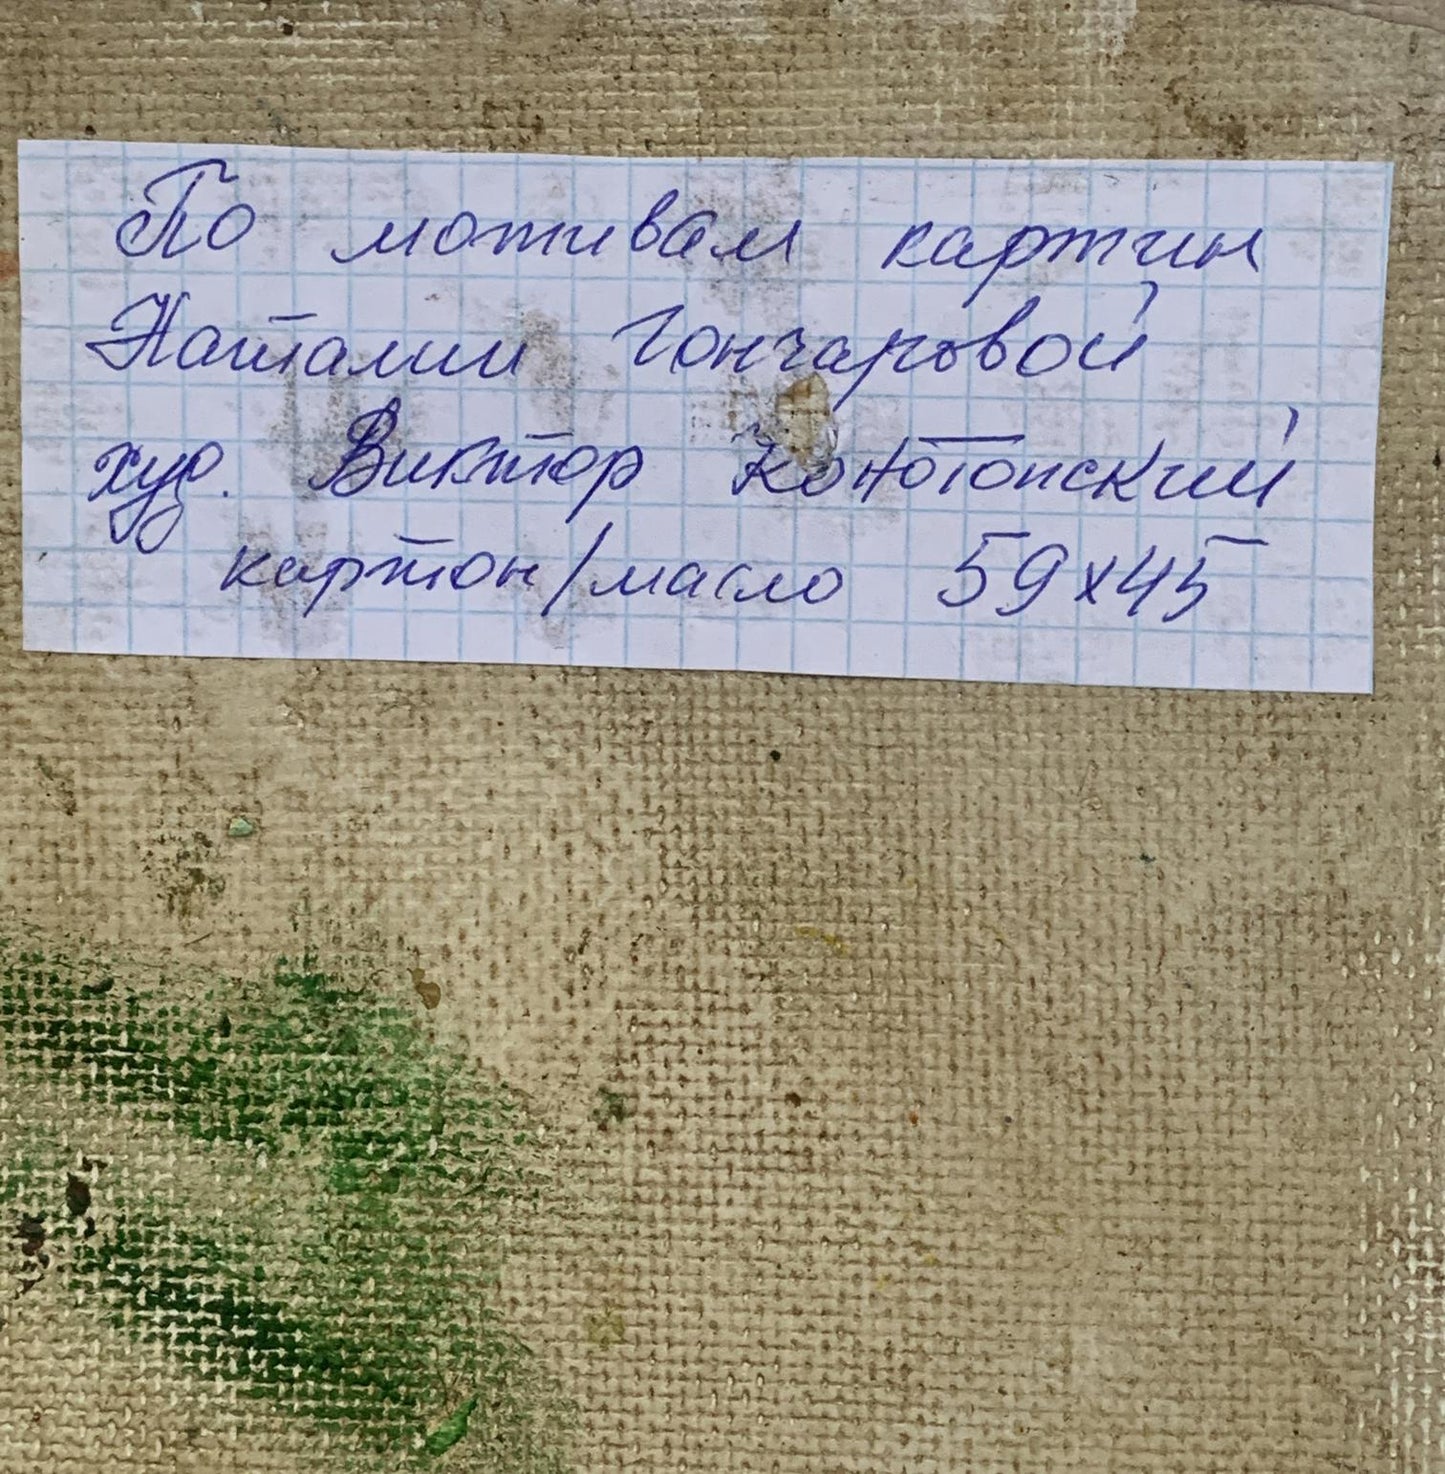 По мотивам картин
Наталии Гончаровой
худ. Виктор Конотопский
картон/масло 59х45